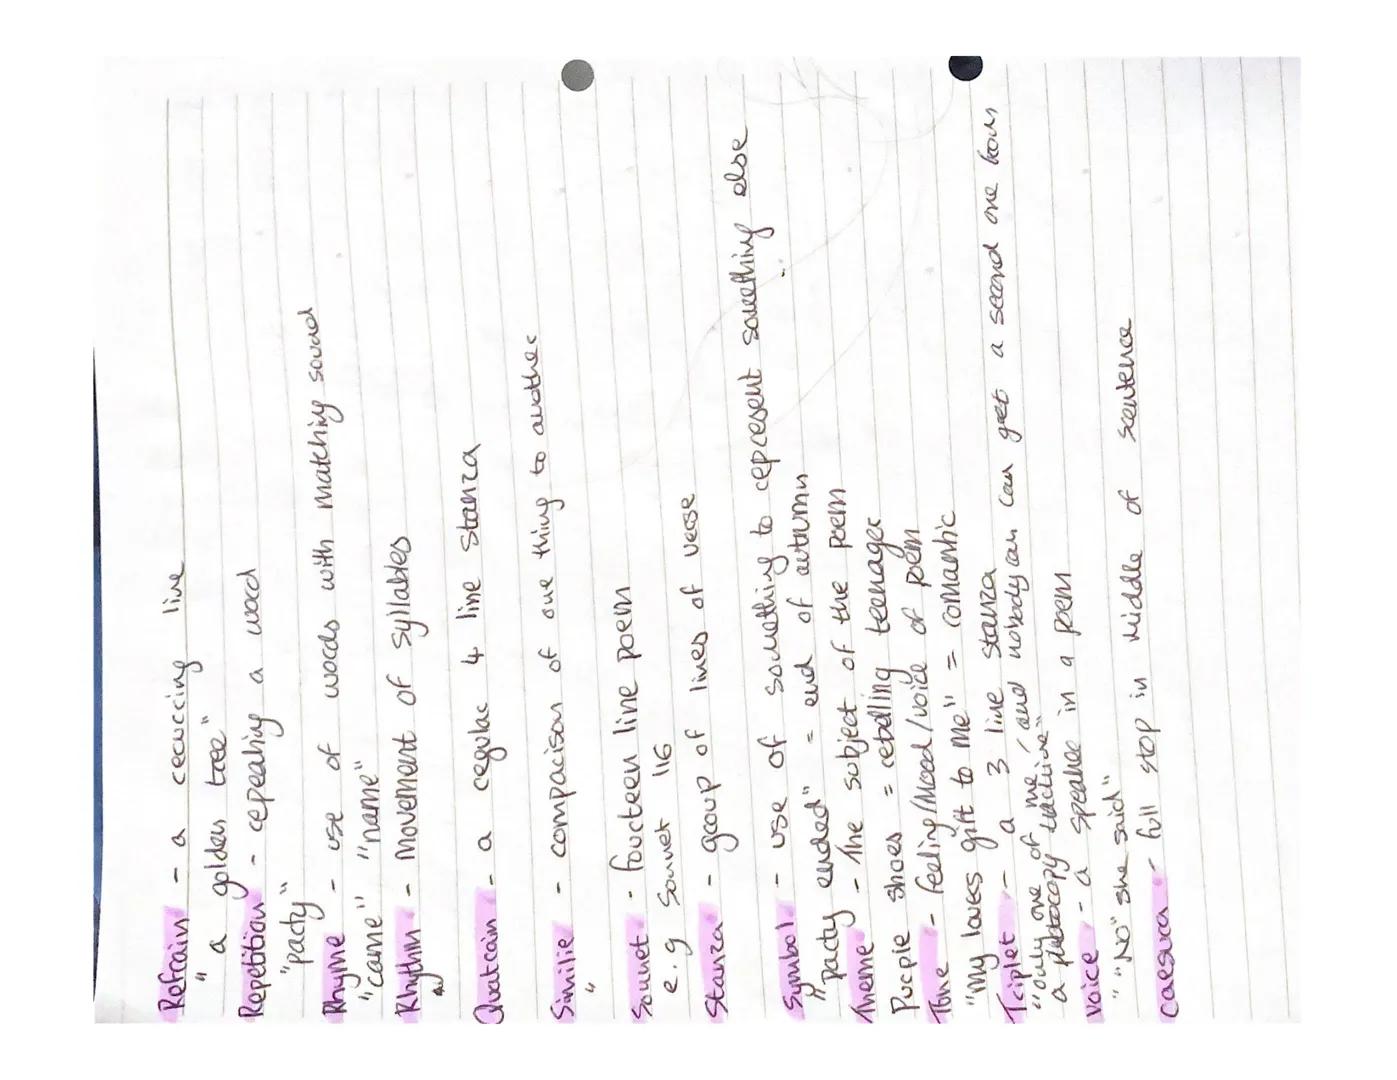 Refrain - a recurring line
"a golden tree"
Repetition - repeating a word
"party"
Rhyme - use of words with matching sound
"came" "name"
Rhythm - movement of syllables
Quatrain - a regular 4 line stanza
Similie - comparison of one thing to another
"
Sonnet - fourteen line poem
e.g Sonnet 116
Stanza - group of lines of verse
Symbol - use of something to represent something else
"party ended" = end of autumn
Theme - The subject of the poem
Purple shoes = rebelling teenager
Tone - feeling/Mood/voice of poem
"My loves gift to me" = romantic
Triplet - a 3 line stanza
"only one of me / and nobody can can get a second one from
a photocopy machine"
Voice - a speaker in a poem
"NO" she said"
caesura - full stop in middle of sentence